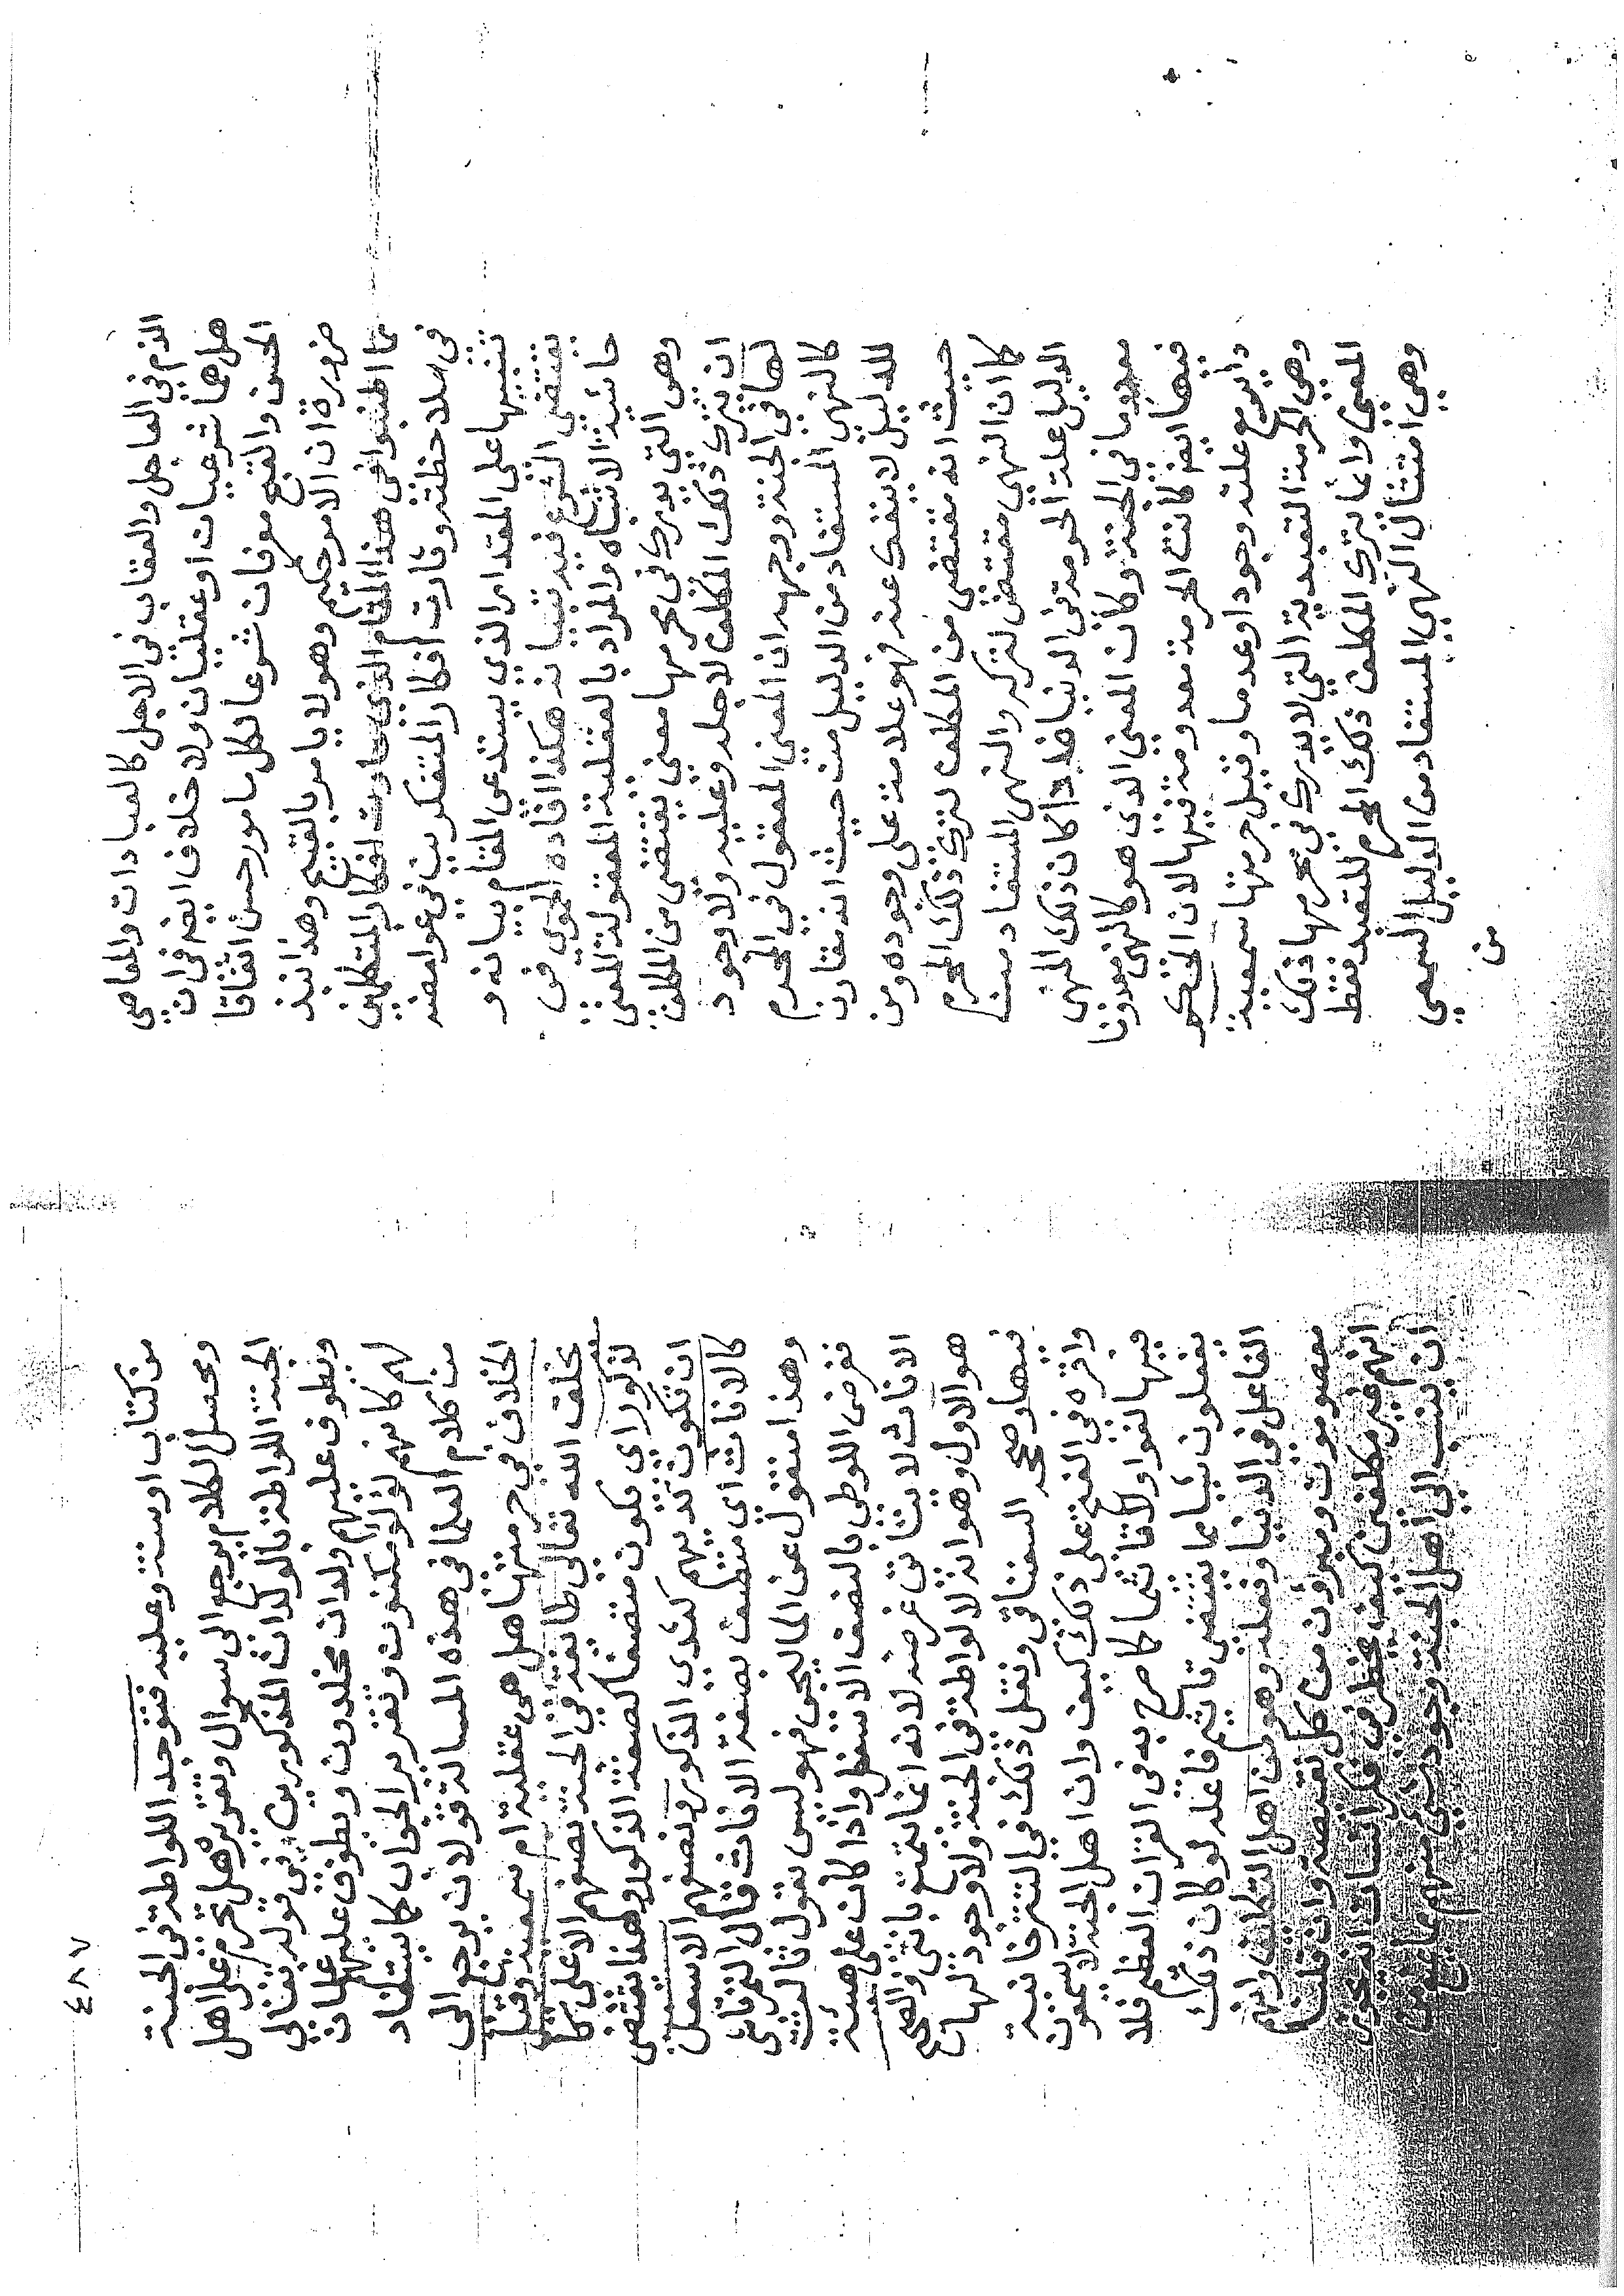 الذم في العاجل والعقاب في الاجل كالعبادات والمعاصي
هل هما شرعيات او عقليان ولا خلاف ايضا في ان
الحسن والقبح معرفات شرعا لكل مامور حسن اتفاقا
ضرورة ان الامر حكيم وهو لا يامر بالقبيح وهذا نبذ
مما اطنبوا في هذا المقام الذي حارت افكار المتكلمين
في ملاحظته وقارت افكار المتفكرين في غوامضه
تنبيها على المقدار الذي يستدعي المقام بيانه و
يقتضي الشرع فيه تبيانه هكذا افاده الحموي في
حاشية الاشباه والمراد بالعقلية المعقولة المعنى
وهي التي يدرك في محرمها معنى يقتضي من المكلف
ان يترك ذلك المكلف لاجله وعليه ولا وجود
لها في الجنة ووجهه ان المعنى المعقول في المحرم
كالنهي المستفاد من الدليل من حيث انه مقارن
للدليل لا ينفك عنه فهو علامة على وجوده ومن
حيث انه مقتضى من المكلف لترك ذلك المحرم
كما ان النهي مقتض لتركه والنهي المستفاد من
الدليل علة الحرمة في الدنيا فاذا كان ذلك النهي
معدوما في الجنة وكان المعنى الذي هو كالنهي معدوما
فيها ايضا كانت الحرمة معدومة فيها لان الحكم
دائر مع علته وجودا وعدما وقيل حرمتها سمعية
وهي الحرمة التعبدية التي لا يدرك في محرمها ذلك
المعنى وانما يترك المكلف ذلك المحرم للتعبد فقط
وهي امتثال النهي المستفاد من الدليل السمعي
من
٤٨٧
من كتاب او سنة وعليه فتوجد اللواطة في الجنة
ومحصل الكلام يرجع الى سوال وتقريره هل تحرم على اهل
الجنة اللواطة بالولدات المذكورين في قوله تعالى
ويطوف عليهم ولدان مخلدون ويطوف عليهم غلمان
لهم كانهم لؤلؤ مكنون وتقرير الجواب كما يستفاد
من كلام العلما في هذه المسالة قولان يرجع الى
الخلاف في حرمتها هل هي عقلية ام سمعية وقيل
يخلق الله تعالى طائفة في الجنة نصفهم الاعلى كا
لذكور اي يكون متصفا كصفة الذكور وهذا يقتضي
ان تكون ثديهم كثدي الذكور ونصفهم الاسفل
كالاناث اي متصف بصفة الاناث قال التمرتاشي
وهذا منقول عن الماليجى فهو ليس بقول ثالث
تفرض اللوطي بالنصف الاسفل واذا كان على هيئة
الاناث لا يتاتى غرضه لانه انما يتمتع بانثى والصحيح
هو الاول وهو انه لا لواطة في الجنة ولا وجود لها
فيها وصححه السغناقي ونقل ذلك في التترخانية
واقره في الفتح على ذلك كيف وان اهل الجنة لا يسمعون
فيها لغوا ولا تاثيما كما صرح به في القران العظيم فلا
يفعلون شيا مما يقتضي تاثيم فاعله لو كان ذلك
الفاعل في الدنيا وفعله وهو من اهل التكليف وانهم
معصومون ومبرؤن من كل نقيصة وان قلت
انهم غير مكلفين كيف يخطر في فكر انسان انه يجوز
ان ينسب الى اهل الجنة وجود شيء منهم مما